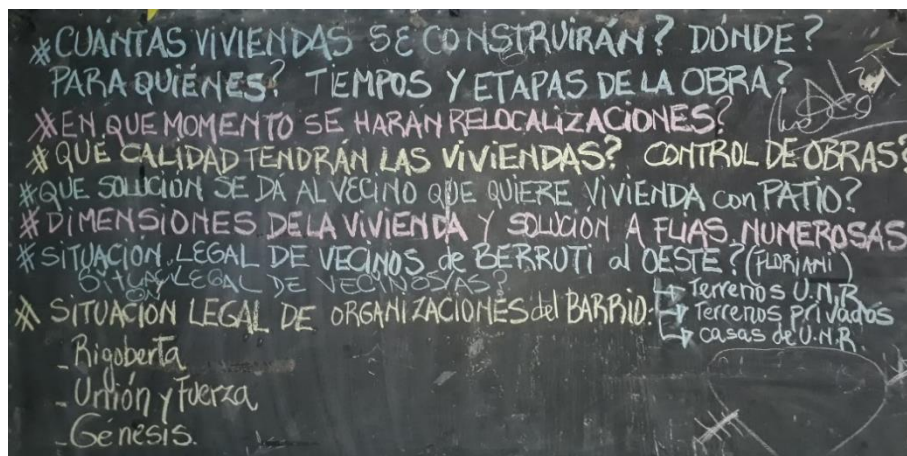 #CUÁNTAS VIVIENDAS SE CONSTRUIRÁN? DÓNDE?
PARA QUIÉNES? TIEMPOS Y ETAPAS DE LA OBRA?
#EN QUE MOMENTO SE HARÁN RELOCALIZACIONES?
#QUÉ CALIDAD TENDRÁN LAS VIVIENDAS? CONTROL DE OBRAS?
#QUE SOLUCIÓN SE DÁ AL VECINO QUE QUIERE VIVIENDA con PATIO?
#DIMENSIONES DE LA VIVIENDA Y SOLUCIÓN A FLIAS. NUMEROSAS
#SITUACIÓN LEGAL DE VECINOS de BERRUTI al OESTE? (FLORIANI)
LEGAL DE VECINOS/AS?
Terrenos U.N.R
# SITUACIÓN LEGAL DE ORGANIZACIONES del BARRIO:
Terrenos privados
casas de U.N.R.
- Rigoberta
- Unión y Fuerza
- Génesis.